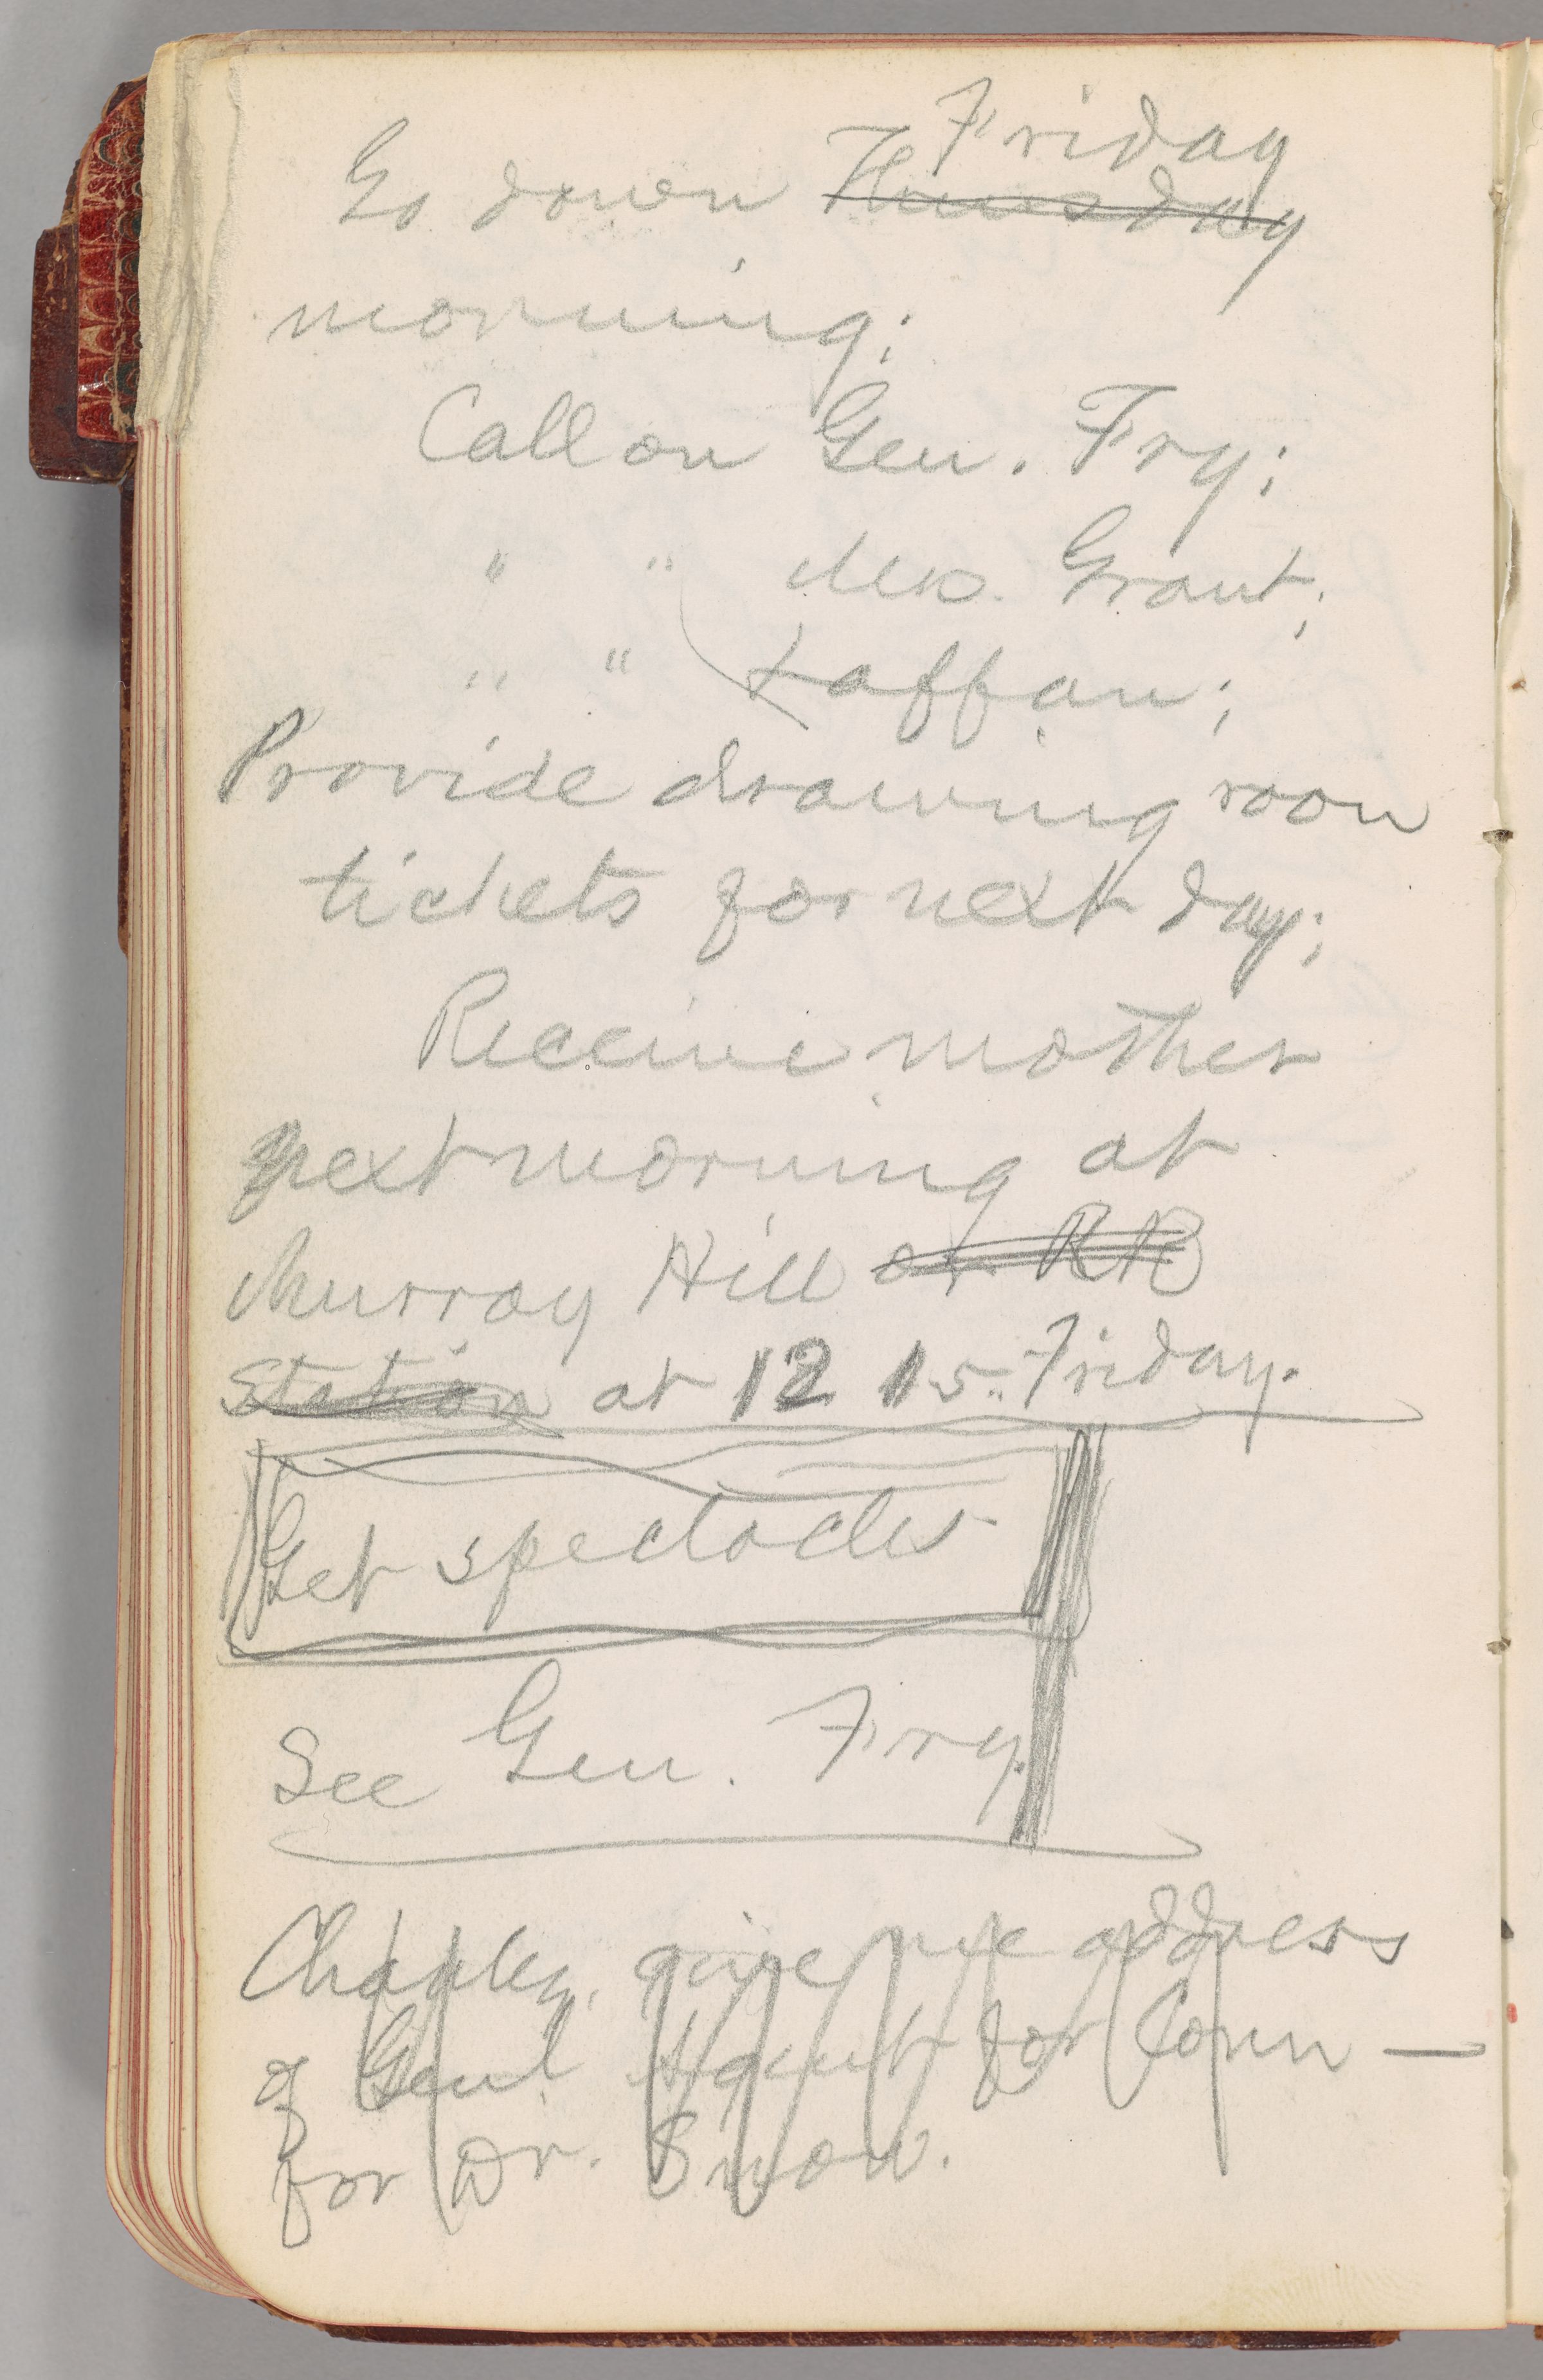 Friday
Go down Thursday
morning;
Call on Gen. Fry;
" " Mrs. Grant;
" " Laffan;
Provide drawing room
tickets for next day;
Receive mother
next morning at
Murray Hill or RR
Station at 12 15. Friday.
Get spectacles
See Gen. Fry.
Charley, give me address
of Genl Agent for Conn —
for Dr. Snow.